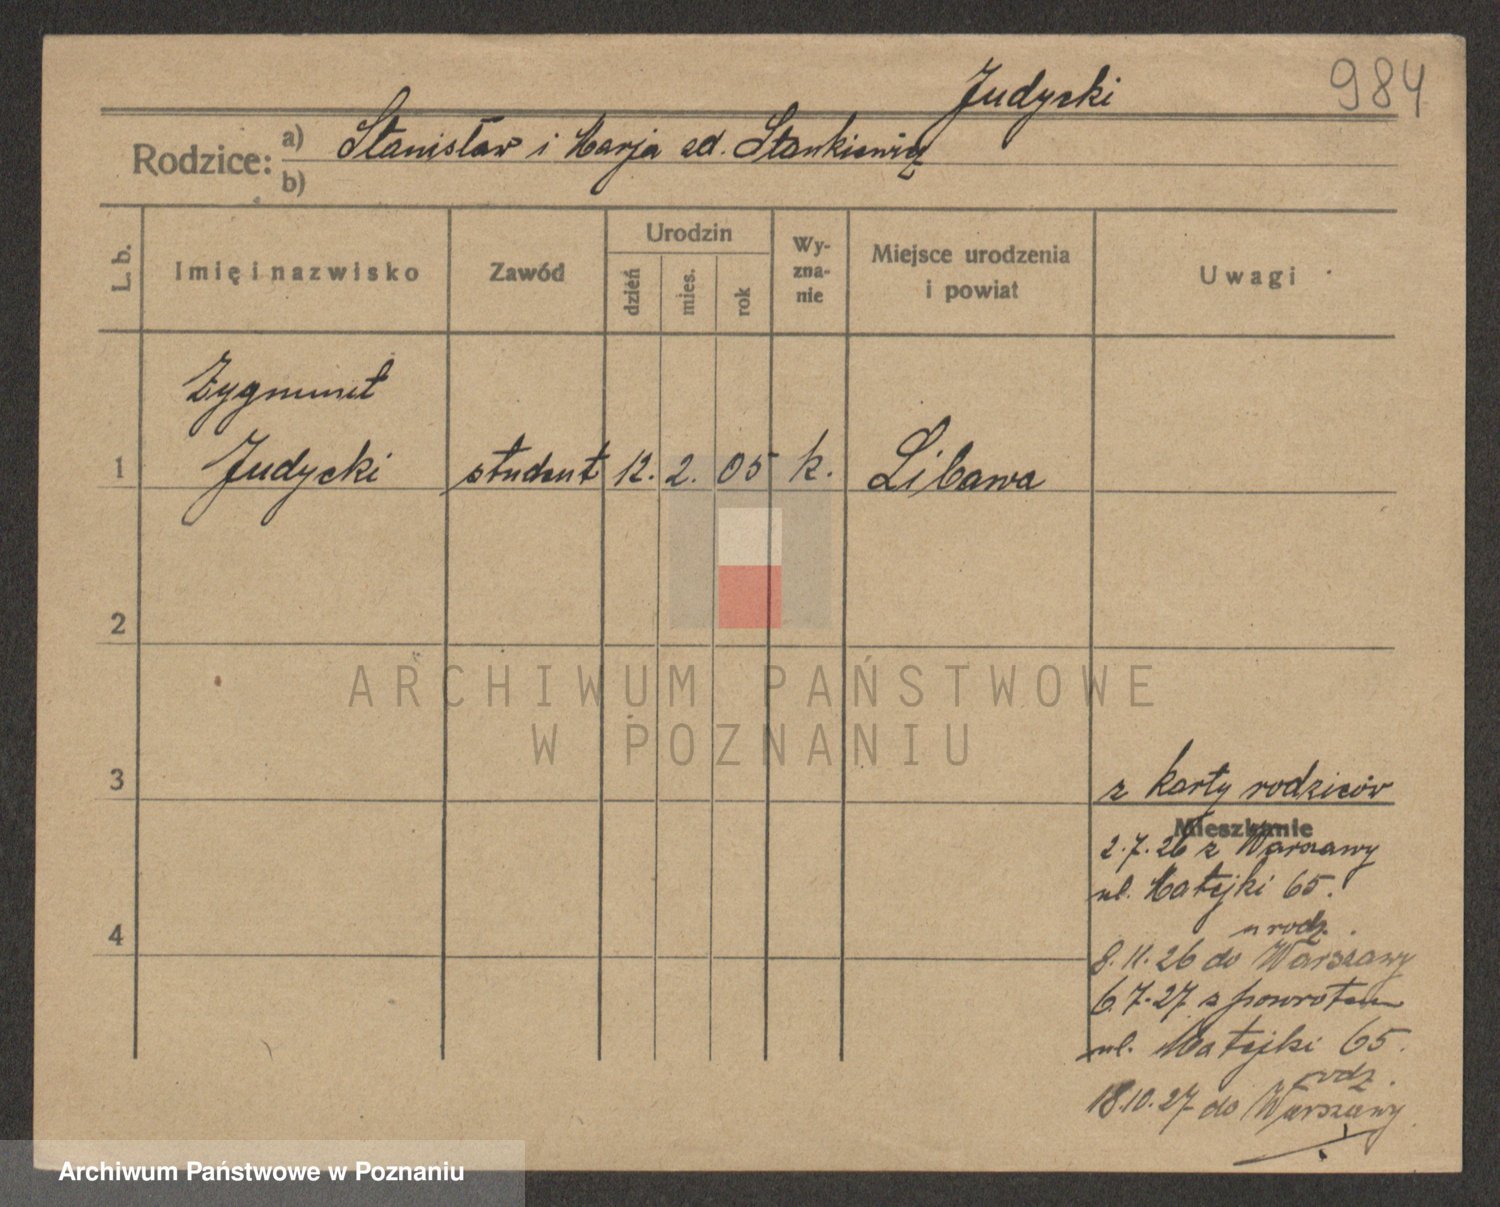 Judycki
984
Rodzice:
a) Stanisław i Marja zd. Stankiewicz
b)
L. b.
Imię i nazwisko
Zawód
Urodzin
dzień
mies.
rok
Wy-
zna-
nie
Miejsce urodzenia
i powiat
Uwagi
Zygmunt
1 Judycki student 12. 2. 05 k. Libawa
2
3
z karty rodziców
Mieszkanie
2.7.26 z Warszawy
ul. Matejki 65.
4
u rodz.
8.11.26 do Warszawy
6.7.27 z powrotem
ul. Matejki 65.
rodz.
18.10.27 do Warszawy
ARCHIWUM PAŃSTWOWE
W POZNANIU
Archiwum Państwowe w Poznaniu